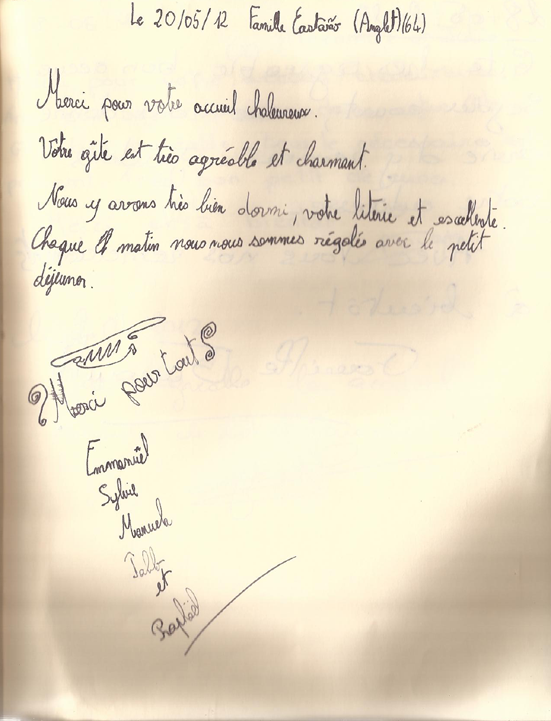 Le 20/05/12 Famille (Anglet)(64)
Merci pour votre accueil chaleureux.
Votre gîte est très agréable et charmant.
Nous y avons très bien dormi, votre literie et escellente.
Chaque matin nous nous sommes régalés avec le petit
déjeuner.
Merci pour tout
Emmanuël
Sylvie
Manuela
et
Raphaël